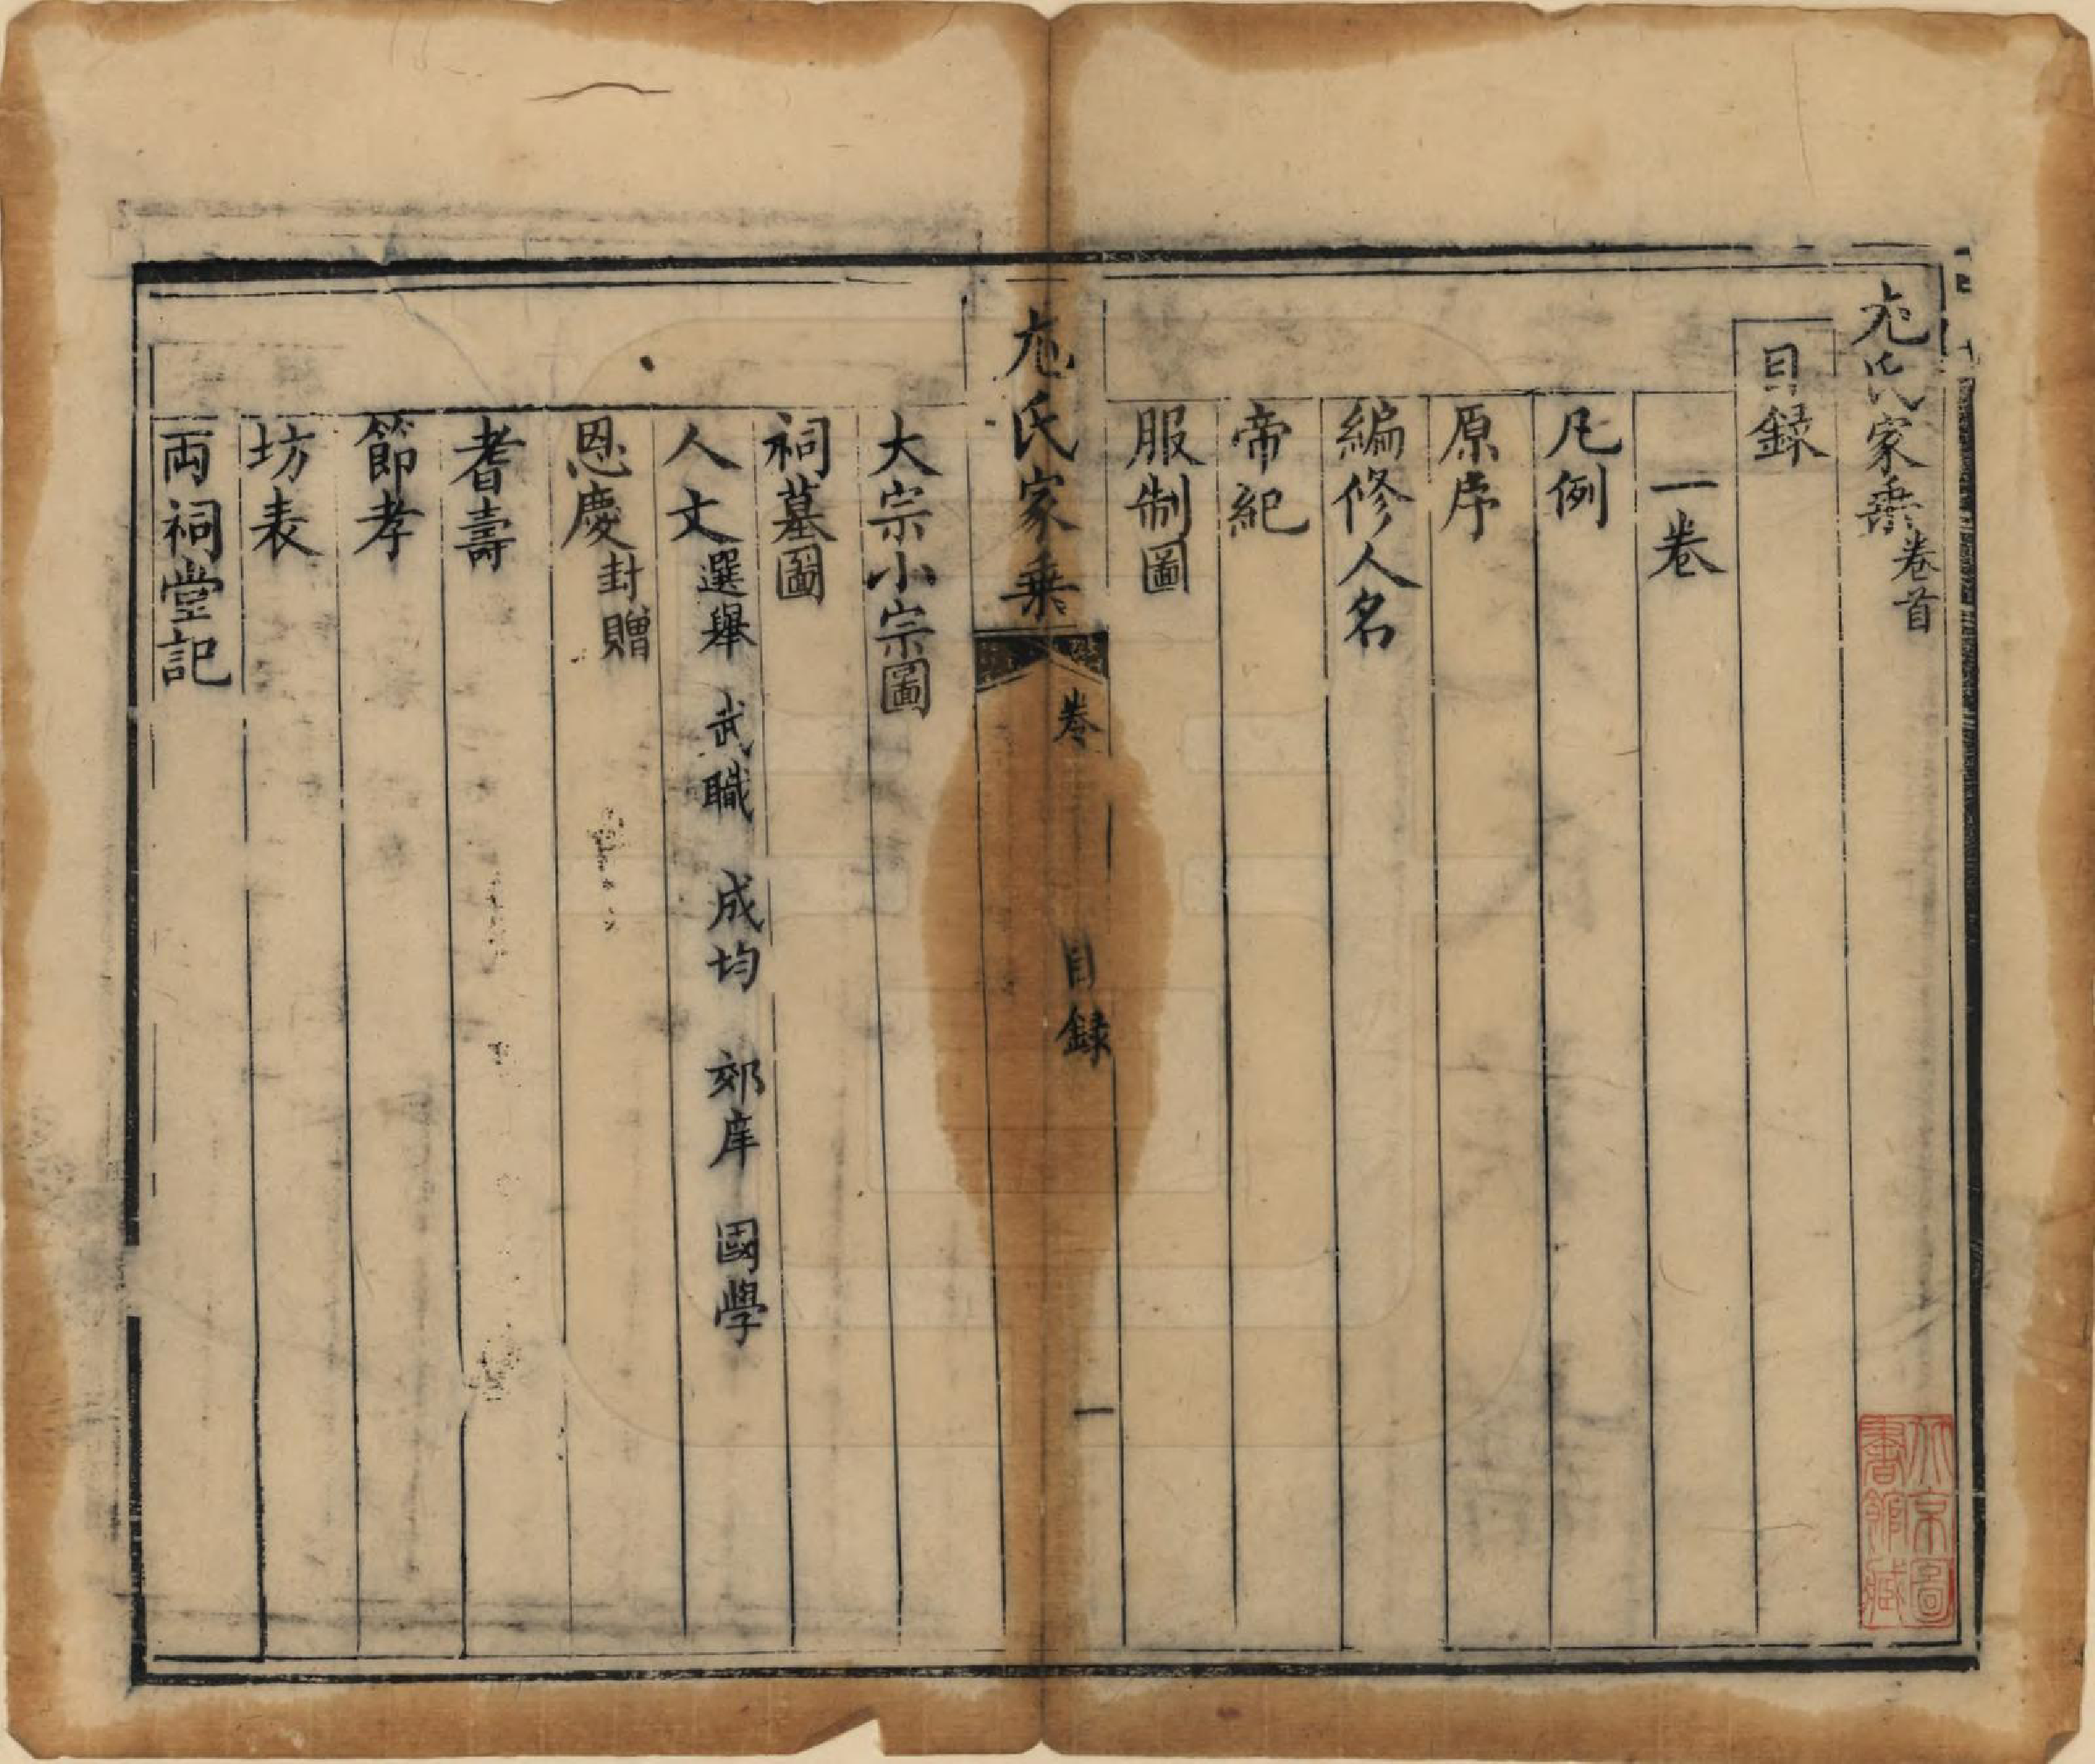 氏家乘卷首
目録
一卷
凡例
原序
編修人名
帝紀
服制圖
氏家乘 卷 目録 一
大宗小宗圖
祠墓圖
人文 選舉 武職 成均 郊庠 國學
恩慶 封贈
耆壽
節孝
坊表
両祠堂記
北京圖
書館藏